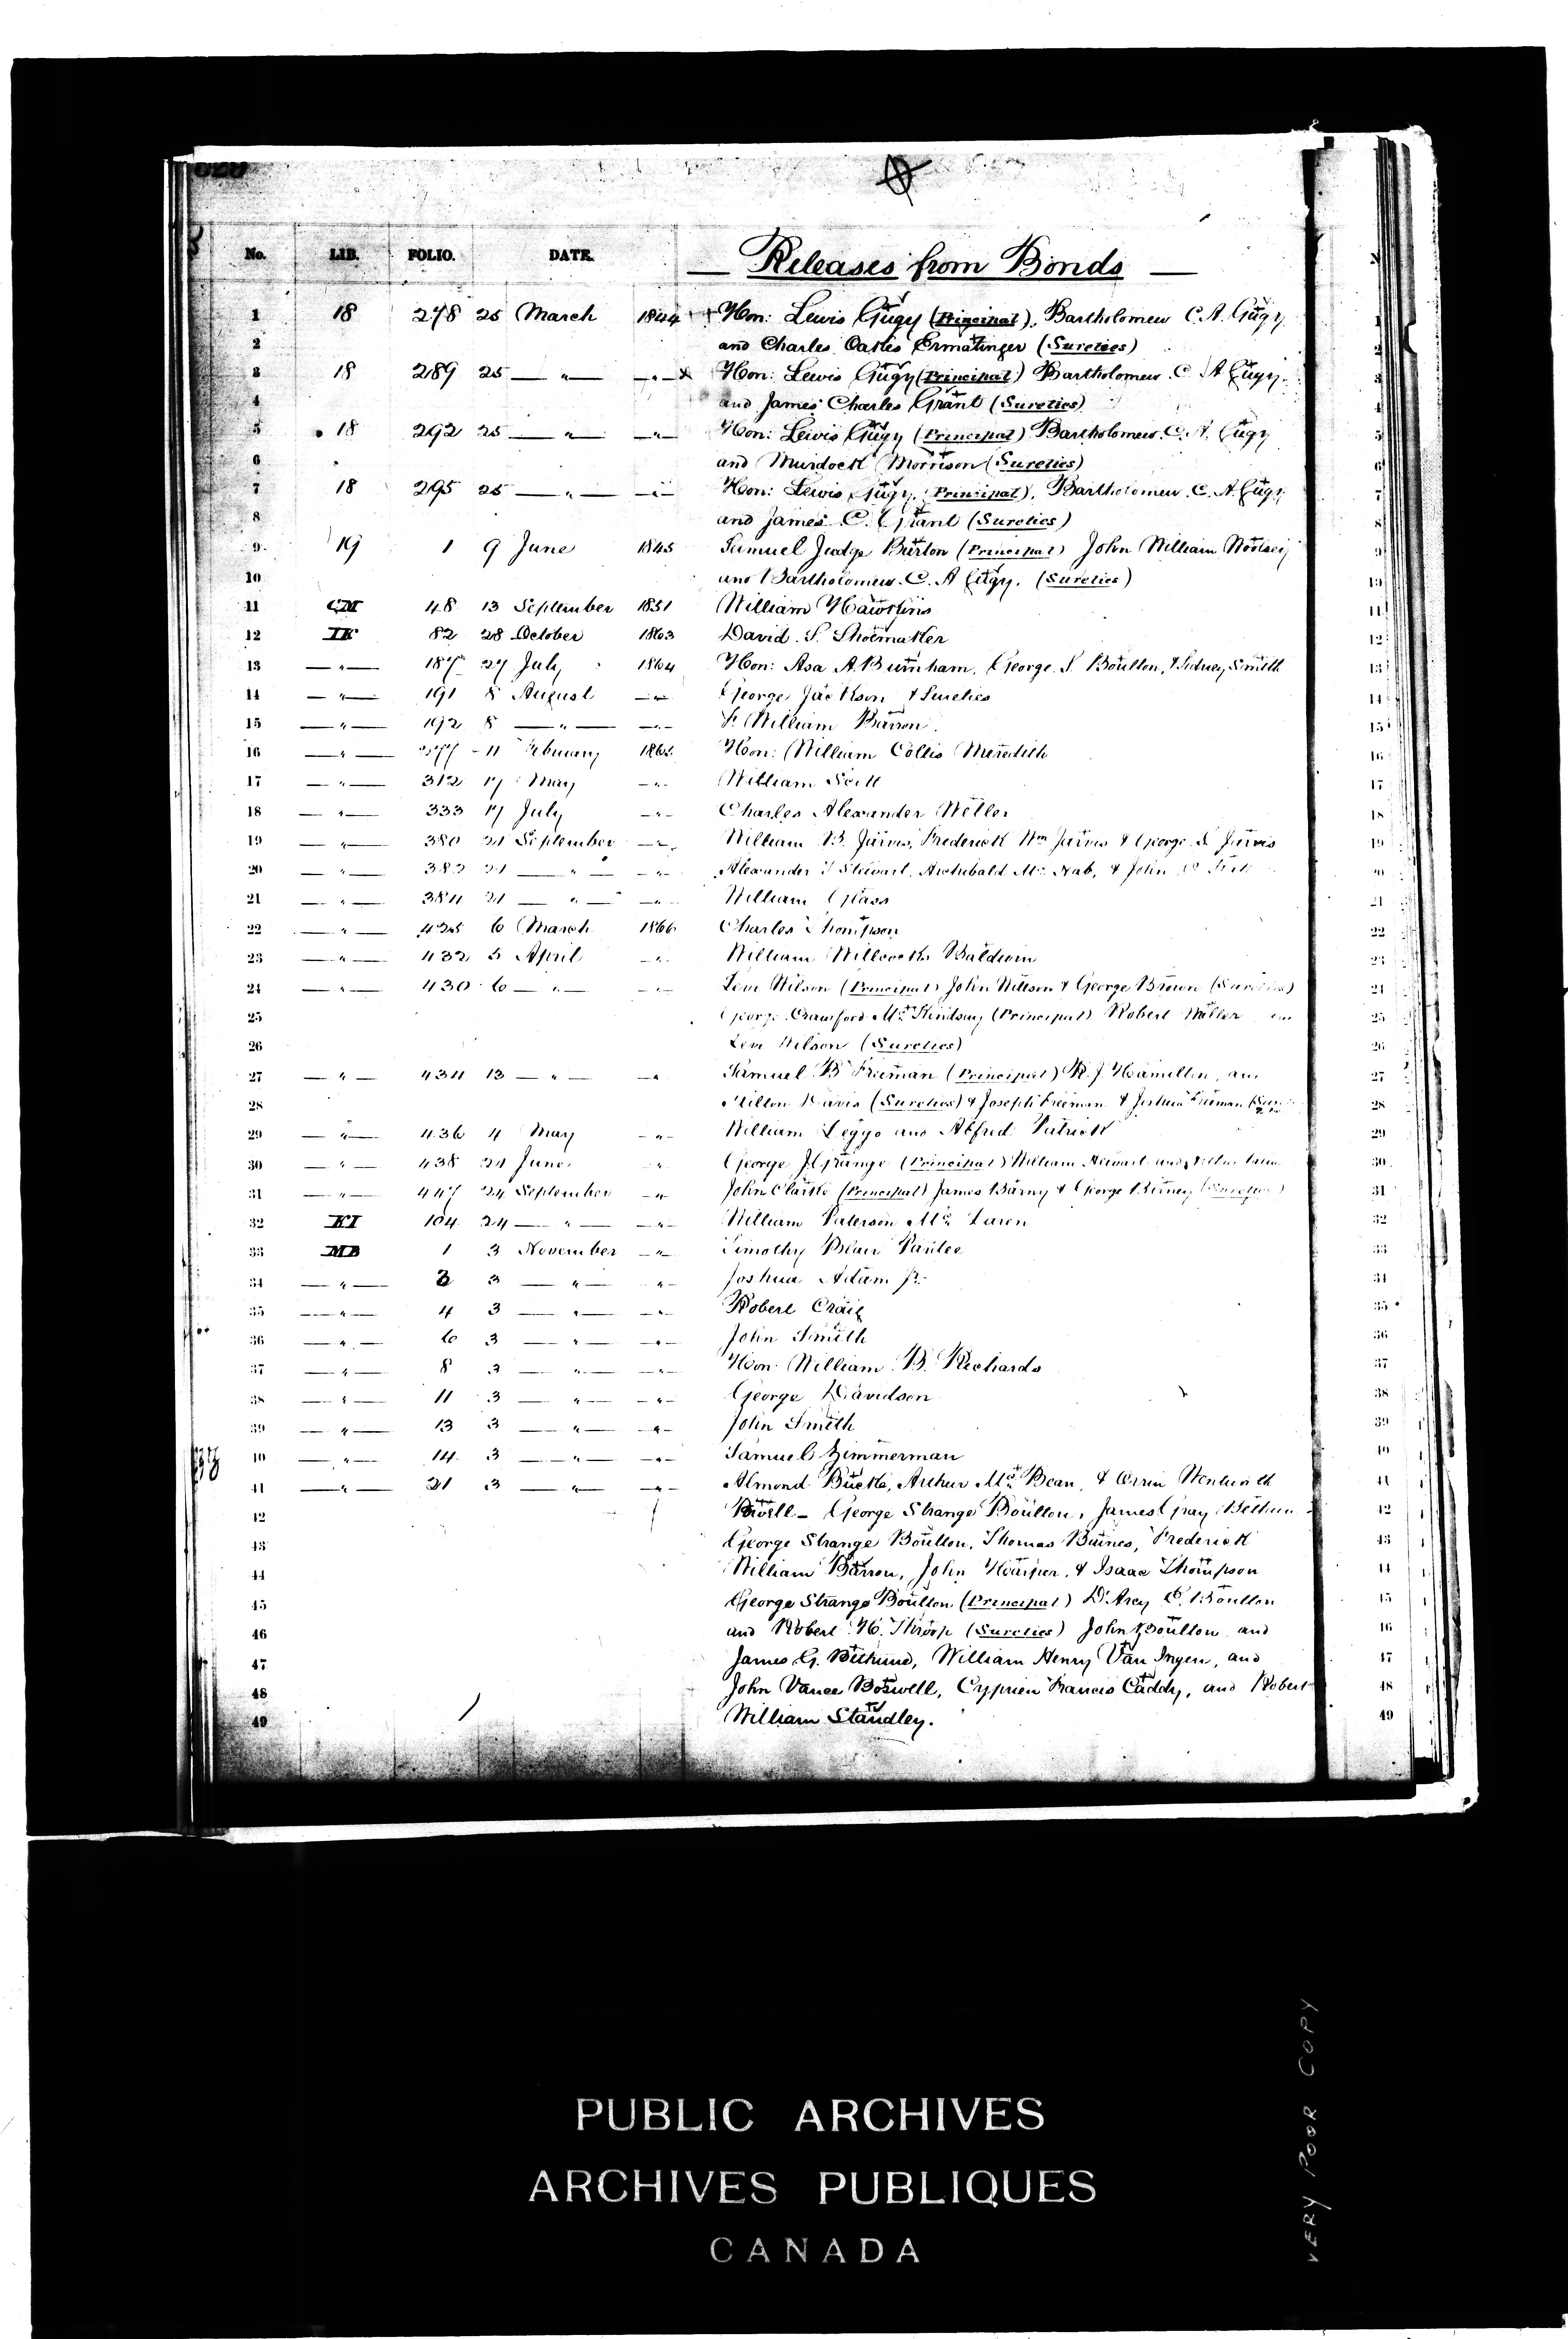 No. LIB. FOLIO. DATE. Releases from Bonds
1 18 278 25 March 1844 Hon: Lewis Gugy (Principal), Bartholomew C. A. Gugy
2 and Charles Oakes Ermatinger (Sureties)
3 18 289 25 — " — — " — Hon: Lewis Gugy (Principal) Bartholomew C. A. Gugy
4 and James Charles Grant (Sureties)
5 18 292 25 — " — — " — Hon: Lewis Gugy (Principal) Bartholomew C. A. Gugy
6 and Murdock Morrison (Sureties)
7 18 295 25 — " — — " — Hon: Lewis Gugy (Principal), Bartholomew C. A. Gugy
8 and James C. Grant (Sureties)
9 19 1 9 June 1845 Samuel Judge Burton (Principal) John William Woolsey
10 and Bartholomew C. A Gugy. (Sureties)
11 CM 48 13 September 1851 William Hawkins
12 IK 82 28 October 1863 David S. Shoemaker
13 — " — 187 27 July 1864 Hon: Asa A. Burnham, George S. Boulton, & Sidney Smith
14 — " — 191 8 August — " — George Jackson & Sureties
15 — " — 192 8 — " — — " — F. William Barron
16 — " — 277 11 February 1865 Hon: William Collis Meredith
17 — " — 312 17 May — " — William Scott
18 — " — 333 17 July — " — Charles Alexander Weller
19 — " — 380 21 September — " — William B. Jarvis, Frederick Wm Jarvis & George S. Jarvis
20 — " — 382 21 — " — — " — Alexander Stewart, Archibald Mc Nab, & John
21 — " — 384 21 — " — — " — William Glass
22 — " — 425 6 March 1866 Charles Thompson
23 — " — 432 5 April — " — William Willcocks Baldwin
24 — " — 430 6 — " — — " — Levi Wilson (Principal) John Willson & George Brown (Sureties)
25 George Crawford Mc Kindsay (Principal) Robert Miller
26 Levi Wilson (Sureties)
27 — " — 434 13 — " — — " — Samuel B Freeman (Principal) R. J. Hamilton, and
28 Milton Davis (Sureties) & Joseph Freeman & Joshua Freeman
29 — " — 436 4 May — " — William Leggo and Alfred Patrick
30 — " — 438 21 June — " — George J. Grange (Principal) William Stewart and
31 — " — 447 24 September — " — John Clarke (Principal) James Barny & George Birney (Sureties)
32 KI 104 24 — " — — " — William Paterson Mc Laren
33 MB 1 3 November — " — Timothy Blair Pardee
34 — " — 3 3 — " — — " — Joshua Adam Jr.
35 — " — 4 3 — " — — " — Robert Craig
36 — " — 6 3 — " — — " — John Smith
37 — " — 8 3 — " — — " — Hon. William B. Richards
38 — " — 11 3 — " — — " — George Davidson
39 — " — 13 3 — " — — " — John Smith
40 — " — 14 3 — " — — " — Samuel Zimmerman
41 — " — 21 3 — " — — " — Almond Bucke, Arthur Mc Bean, & Orrin Wentworth
42 Powell — George Strange Boulton, James Gray Bethune
43 George Strange Boulton, Thomas Burnes, Frederick
44 William Barron, John Harper, & Isaac Thompson
45 George Strange Boulton (Principal) D'Arcy E. Boulton
46 and Robert H. Throop (Sureties) John Boulton and
47 James G. Bethune, William Henry Van Ingen, and
48 John Vance Boswell, Cyprien Francis Caddy, and Robert
49 William Standley.
PUBLIC ARCHIVES
ARCHIVES PUBLIQUES
CANADA
VERY POOR COPY